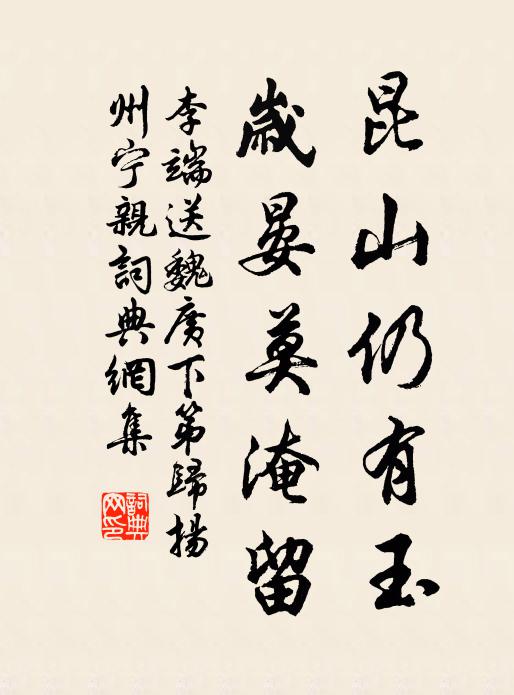 昆山仍有玉
歲晏莫淹留
李端送魏廣下第歸揚
州宁親詞典網集
詞典
网印